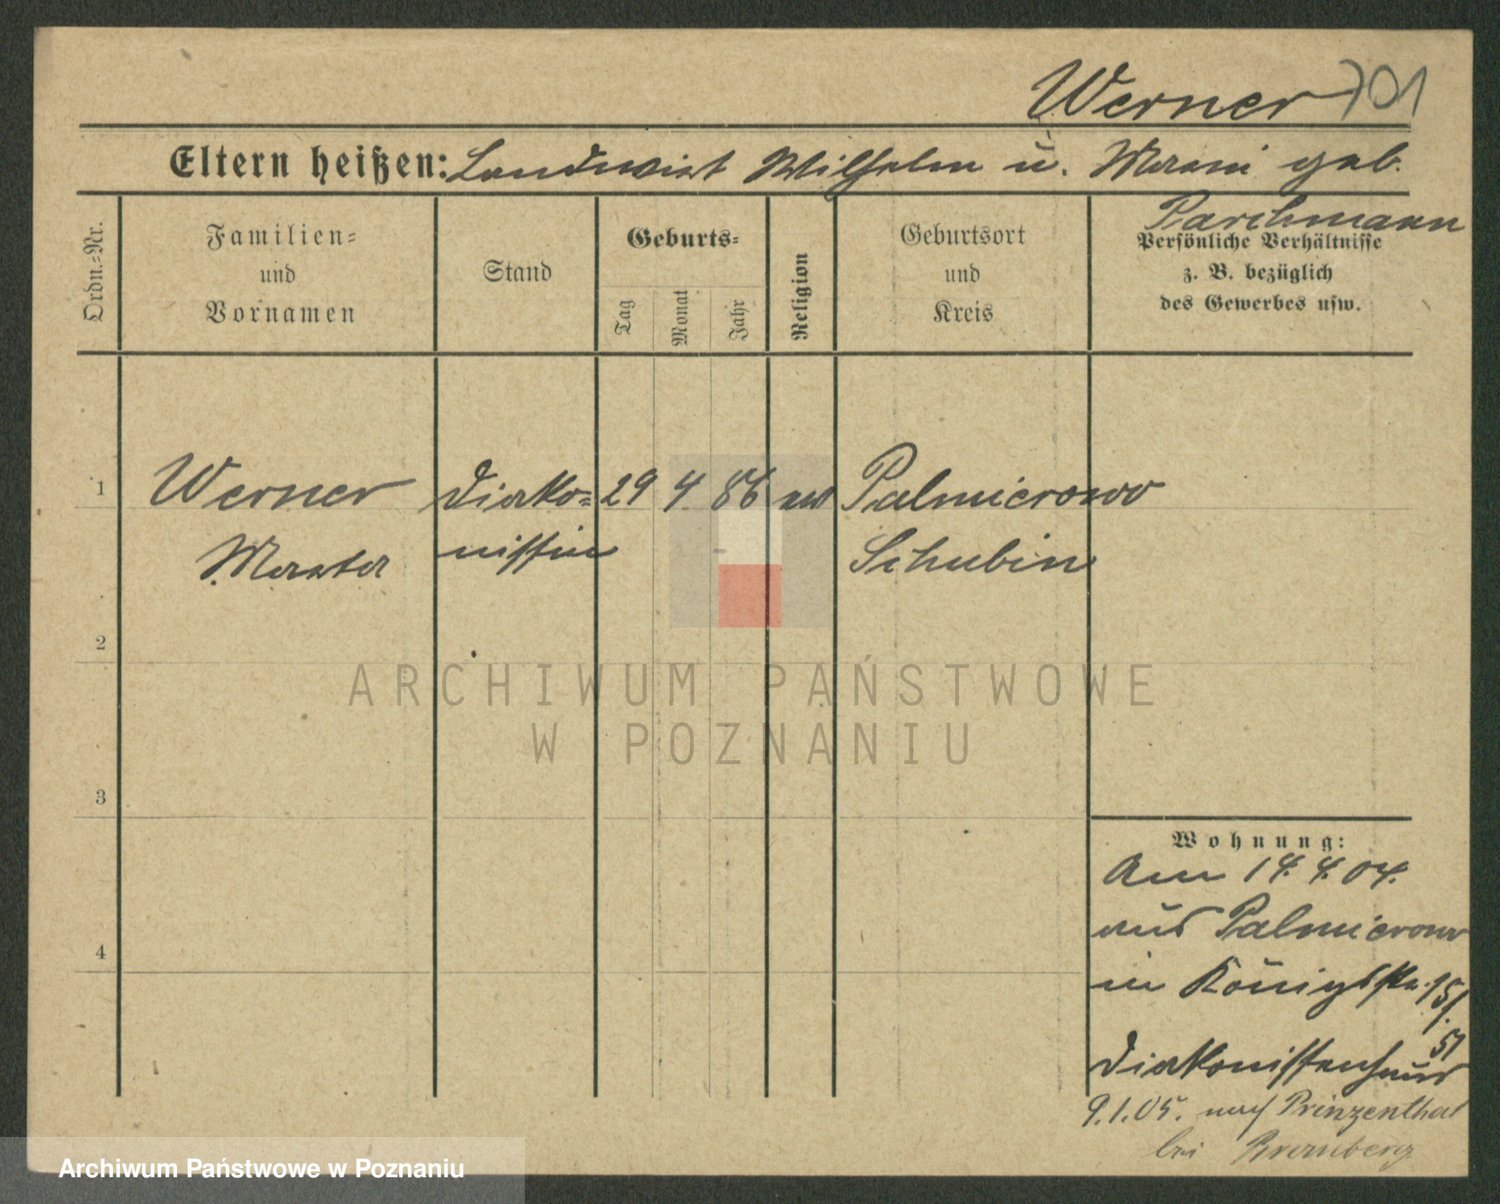 Werner 701
Eltern heißen: Landwirt Wilhelm u. Marie geb.
Parchmann
Ordn.-Nr.
Familien-
und
Vornamen
Stand
Geburts-
Tag
Monat
Jahr
Religion
Geburtsort
und
Kreis
Persönliche Verhältnisse
z. B. bezüglich
des Gewerbes usw.
1 Werner Diako- 29 4 86 ev Palmierowo
Marta nissin Schubin
2
3
4
ARCHIWUM PAŃSTWOWE
W POZNANIU
Wohnung:
Am 14.4.04.
aus Palmierowo
in Königspl.
Diakonissenhaus
9.1.05. nach Prinzenthal
bei Bromberg
Archiwum Państwowe w Poznaniu